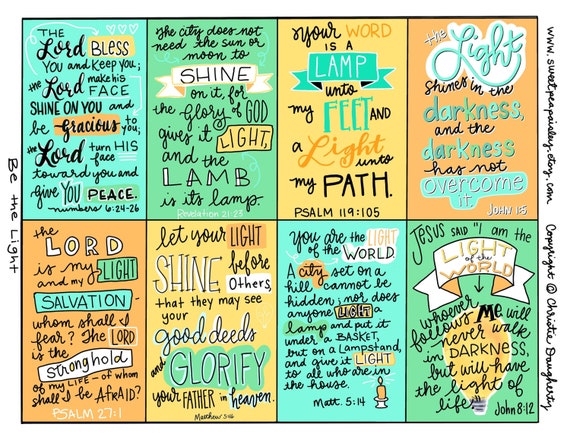 THE
Lord BLESS
YOU and KEEP you;
the make his
LORD FACE
SHINE ON YOU and
be Gracious to
you;
the turn HIS
Lord face
toward you and
give YOU PEACE.
numbers 6:24-26
The city does not
need the sun or
moon to
SHINE
on it, for
the Glory of GOD
gives it LIGHT,
and the
LAMB
is its lamp.
Revelation 21:23
your WORD
IS A
LAMP
unto
my FEET AND
a Light unto
my PATH.
PSALM 119:105
the
Light
shines in the
darkness,
and the
darkness
has not
overcome
it.
JOHN 1:5
the
LORD
is my LIGHT
and my
SALVATION-
whom shall I
fear? The LORD
is the
stronghold
OF MY LIFE - of whom
shall I be AFRAID?
PSALM 27:1
let your LIGHT
SHINE before
others,
that they may see
your
good deeds
and GLORIFY
your FATHER in heaven.
Matthew 5:16
You are the LIGHT
OF THE WORLD.
A city set on a
hill cannot be
hidden; nor does
anyone LIGHT a
lamp and put it
under a BASKET,
but on a lampstand,
and give it LIGHT
to all who are in
the house.
Matt. 5:14
Jesus SAID "I am the
LIGHT OF the
WORLD
whoever
follows Me will
never walk
in DARKNESS,
but will have
the light of
life"
John 8:12
Be the Light
www.sweetpeapaisley.etsy.com
Copyright © Christie Daugherty